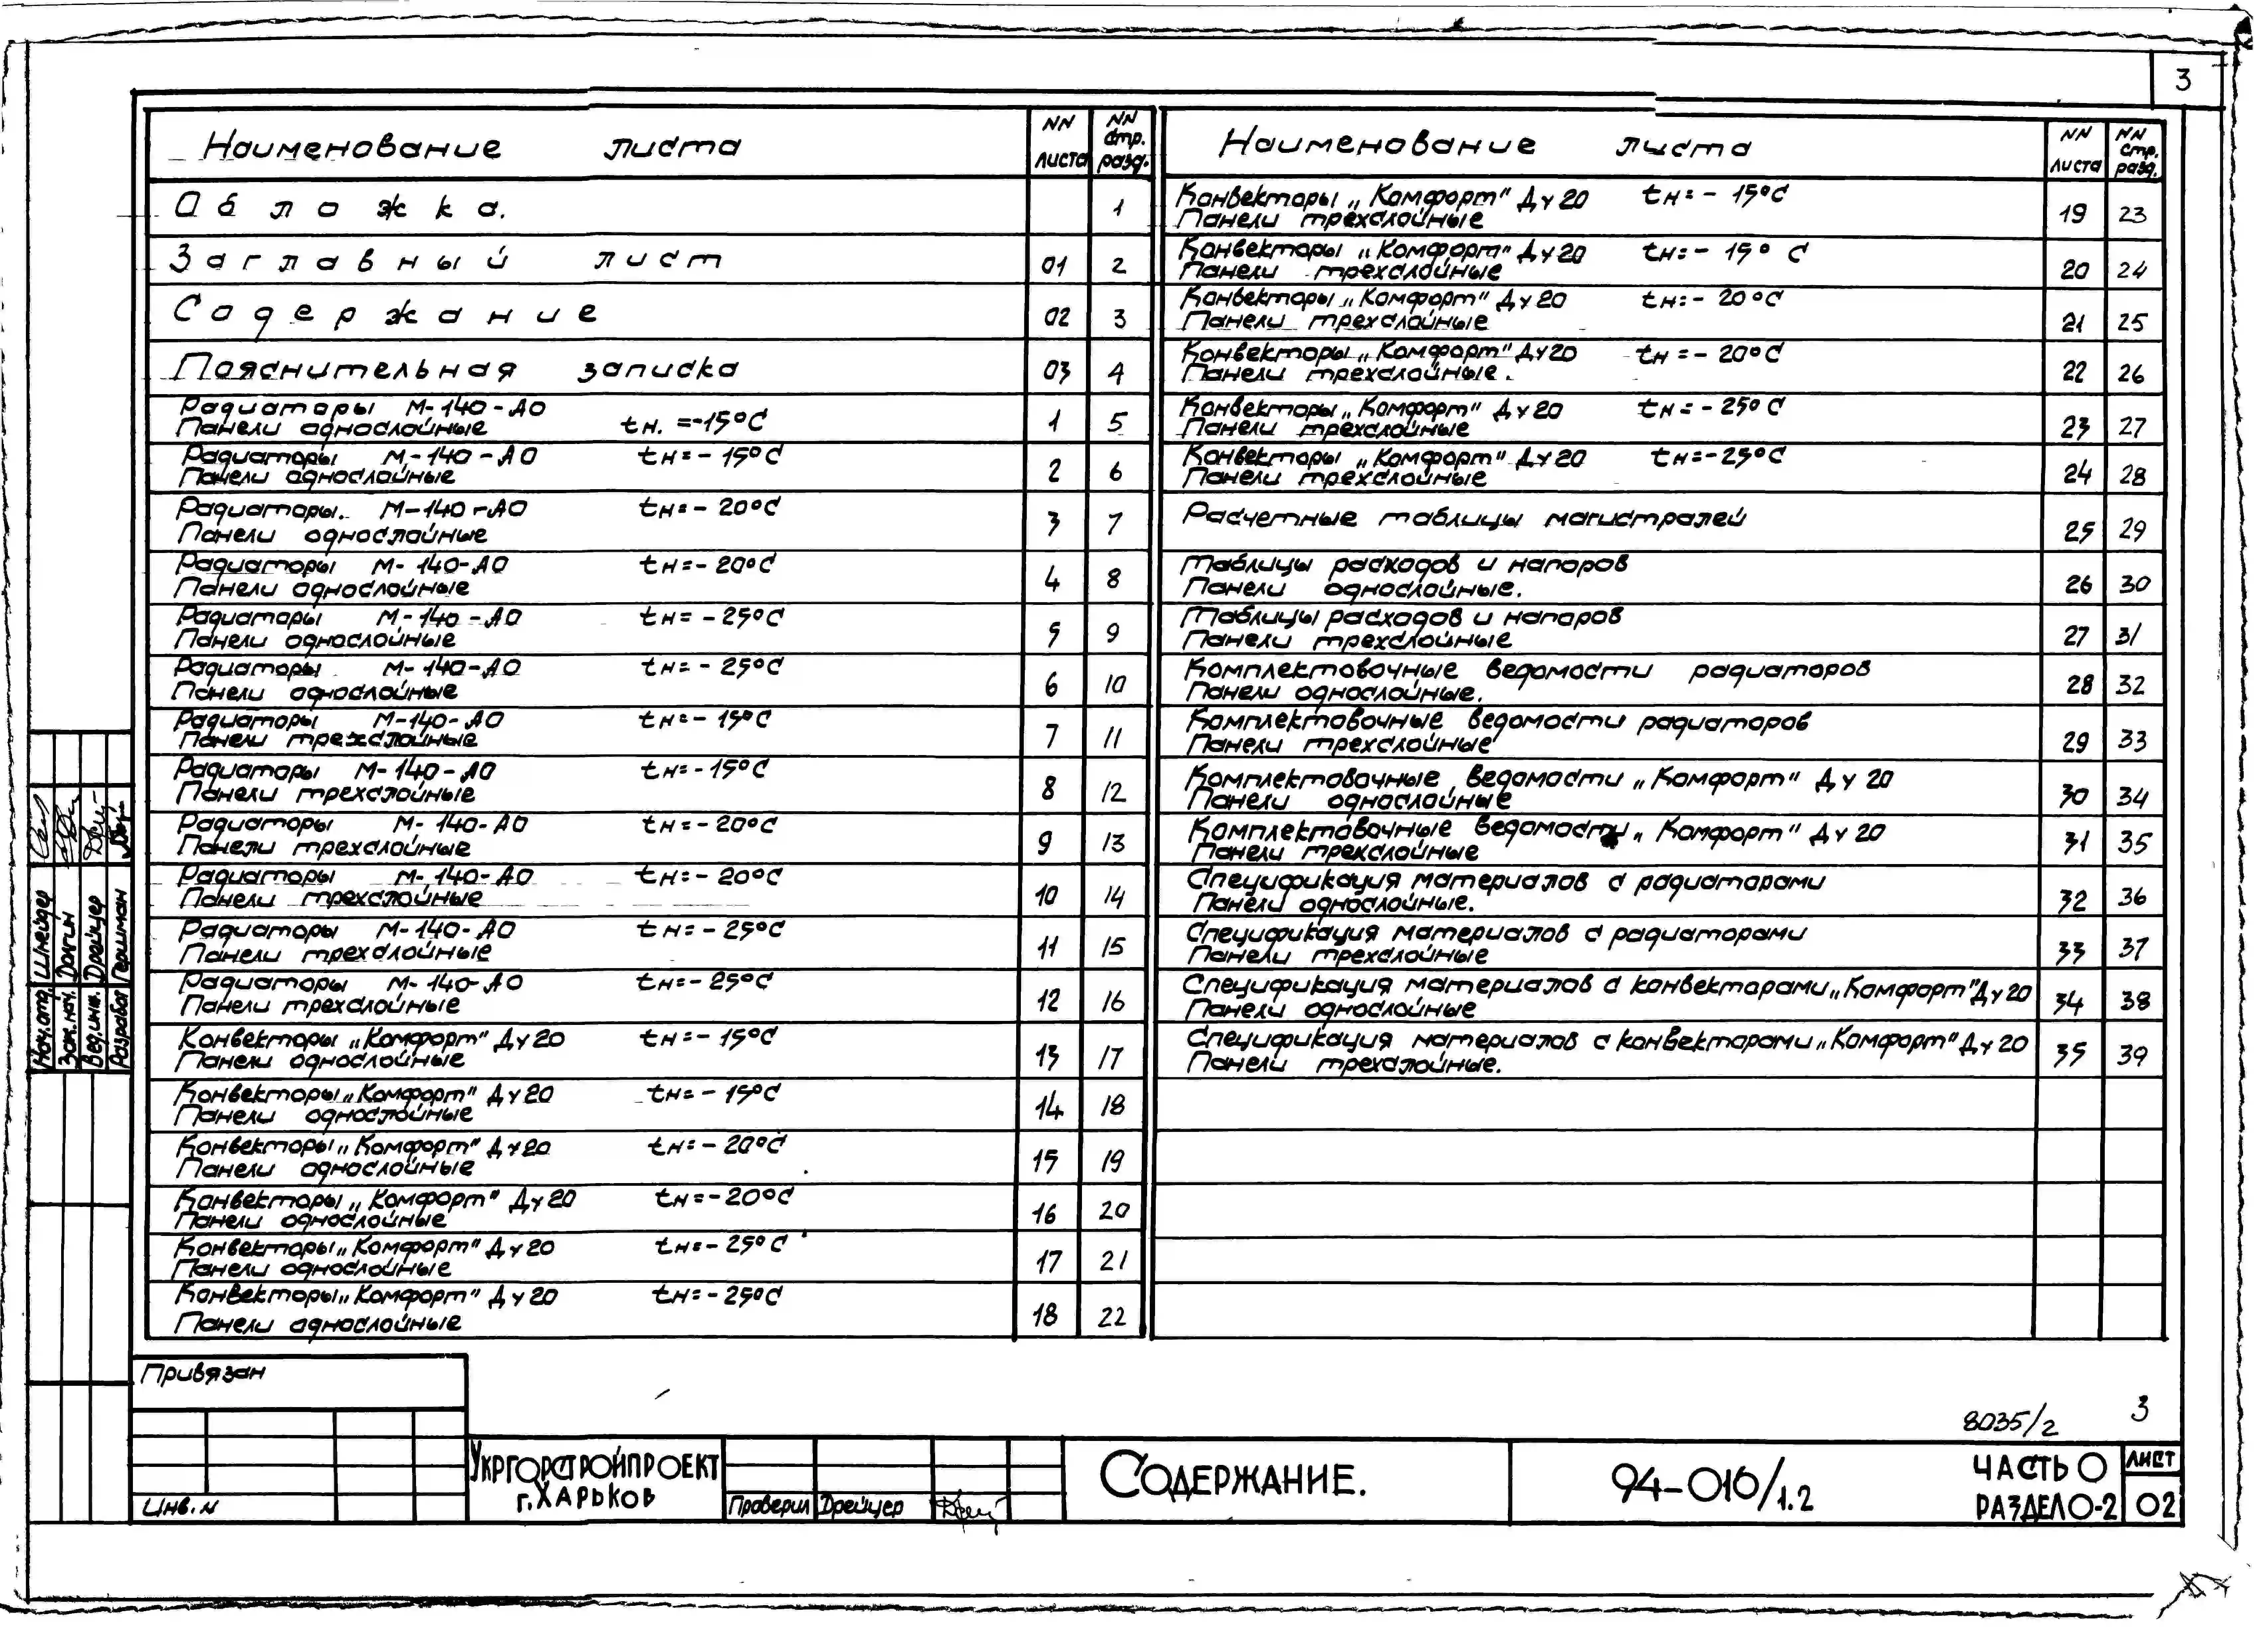 3
Наименование листа NN листа NN стр. разд.
Обложка. 1
Заглавный лист 01 2
Содержание 02 3
Пояснительная записка 03 4
Радиаторы М-140-АО
Панели однослойные tн. =-15°С 1 5
Радиаторы М-140-АО tн=-15°С
Панели однослойные 2 6
Радиаторы. М-140-АО tн=-20°С
Панели однослойные 3 7
Радиаторы М-140-АО tн=-20°С
Панели однослойные 4 8
Радиаторы М-140-АО tн=-25°С
Панели однослойные 5 9
Радиаторы М-140-АО tн=-25°С
Панели однослойные 6 10
Радиаторы М-140-АО tн=-15°С
Панели трехслойные 7 11
Радиаторы М-140-АО tн=-15°С
Панели трехслойные 8 12
Радиаторы М-140-АО tн=-20°С
Панели трехслойные 9 13
Радиаторы М-140-АО tн=-20°С
Панели трехслойные 10 14
Радиаторы М-140-АО tн=-25°С
Панели трехслойные 11 15
Радиаторы М-140-АО tн=-25°С
Панели трехслойные 12 16
Конвекторы „Комфорт" Ду20 tн=-15°С
Панели однослойные 13 17
Конвекторы „Комфорт" Ду20 tн=-15°С
Панели однослойные 14 18
Конвекторы „Комфорт" Ду20 tн=-20°С
Панели однослойные 15 19
Конвекторы „Комфорт" Ду20 tн=-20°С
Панели однослойные 16 20
Конвекторы „Комфорт" Ду20 tн=-25°С
Панели однослойные 17 21
Конвекторы „Комфорт" Ду20 tн=-25°С
Панели однослойные 18 22
Наименование листа NN листа NN стр. разд.
Конвекторы „Комфорт" Ду20 tн=-15°С
Панели трехслойные 19 23
Конвекторы „Комфорт" Ду20 tн=-15°С
Панели трехслойные 20 24
Конвекторы „Комфорт" Ду20 tн=-20°С
Панели трехслойные 21 25
Конвекторы „Комфорт" Ду20 tн=-20°С
Панели трехслойные. 22 26
Конвекторы „Комфорт" Ду20 tн=-25°С
Панели трехслойные 23 27
Конвекторы „Комфорт" Ду20 tн=-25°С
Панели трехслойные 24 28
Расчетные таблицы магистралей 25 29
Таблицы расходов и напоров
Панели однослойные. 26 30
Таблицы расходов и напоров
Панели трехслойные 27 31
Комплектовочные ведомости радиаторов
Панели однослойные. 28 32
Комплектовочные ведомости радиаторов
Панели трехслойные 29 33
Комплектовочные ведомости „Комфорт" Ду 20
Панели однослойные 30 34
Комплектовочные ведомости „Комфорт" Ду 20
Панели трехслойные 31 35
Спецификация материалов с радиаторами
Панели однослойные. 32 36
Спецификация материалов с радиаторами
Панели трехслойные 33 37
Спецификация материалов с конвекторами „Комфорт" Ду20
Панели однослойные 34 38
Спецификация материалов с конвекторами „Комфорт" Ду20
Панели трехслойные. 35 39
Нач.отд. Шнейдер
Зам.нач. Долгин
Вед.инж. Дрейцер
Разработ Гершман
Привязан
Инв. N
Укргорстройпроект
г.Харьков
Проверил Дрейцер
Содержание.
8035/2 3
94-016/1.2
Часть 0
Раздел 0-2
лист
02